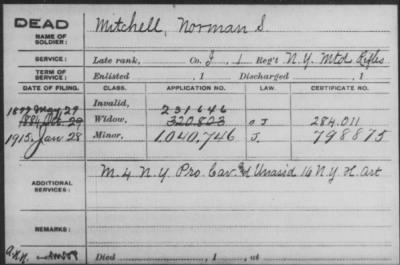 DEAD
NAME OF SOLDIER:
Mitchell, Norman S.
SERVICE:
Late rank, Co. I, 1 Reg't N.Y. Mtd Rifles
TERM OF SERVICE:
Enlisted , 1 Discharged , 1
DATE OF FILING. CLASS. APPLICATION NO. LAW. CERTIFICATE NO.
1877 May 29 Invalid, 231646
1884 29 Widow, 320.823 284.011
1915. Jan 28 Minor, 1040,746 J. 798875
ADDITIONAL SERVICES:
M. 4 N.Y. Pro. Cav. & Unasid 16 N.Y. H. Art
REMARKS:
Died , 1 , at